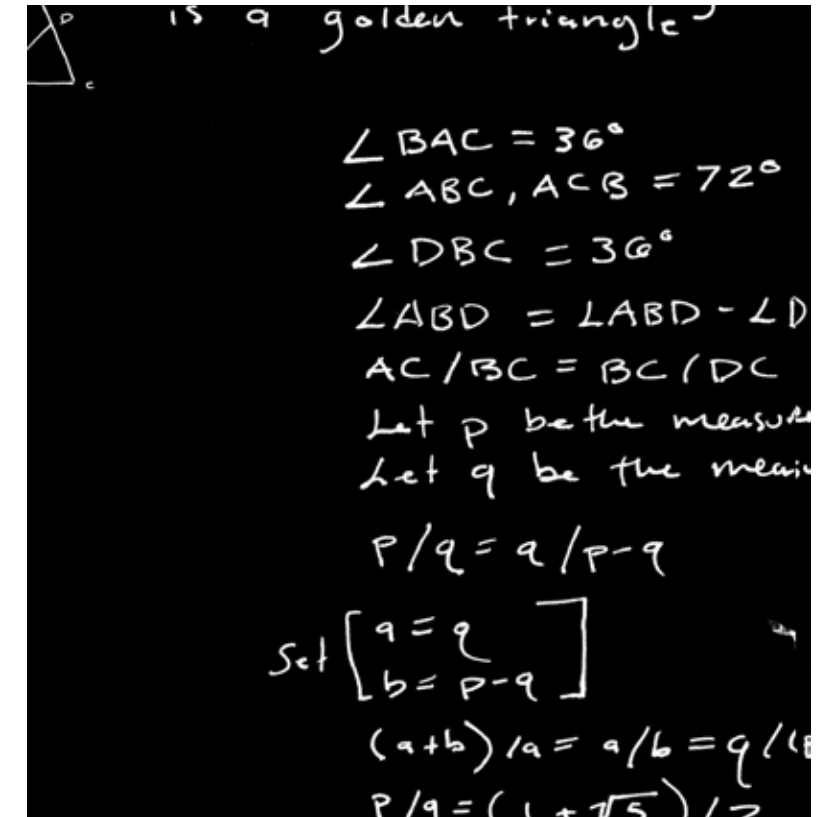 D
is a golden triangle
c
∠ BAC = 36°
∠ ABC, ACB = 72°
∠ DBC = 36°
∠ABD = ∠ABD - ∠D
AC/BC = BC/DC
Let p be the measure
Let q be the
p/q = q/p-q
Set [a = q
b = p-q]
(a+b)/a = a/b = q/(
p/q = (1+√5)/2